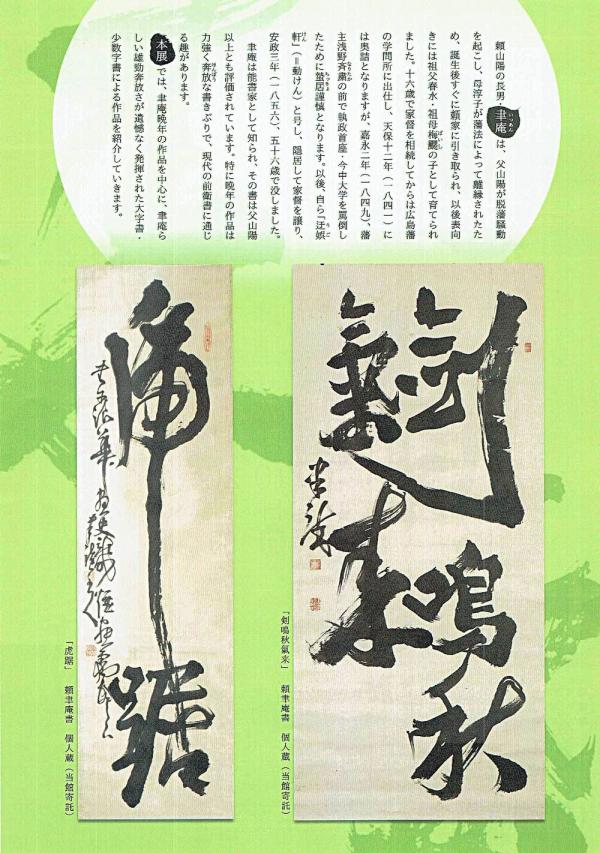 頼山陽の長男・聿庵は、父山陽が脱藩騒動
を起こし、母淳子が藩法によって離縁されたた
め、誕生後すぐに頼家に引き取られ、以後表向
きには祖父春水・祖母梅颸の子として育てられ
ました。十六歳で家督を相続してからは広島藩
の学問所に出仕し、天保十二年（一八四一）に
は奥詰となりますが、嘉永二年（一八四九）、藩
主浅野斉粛の前で執政首座・今中大学を罵倒し
たために蟄居謹慎となります。以後、自ら「迂娯
軒」（＝動けん）と号し、隠居して家督を譲り、
安政三年（一八五六）、五十六歳で没しました。
聿庵は能書家として知られ、その書は父山陽
以上とも評価されています。特に晩年の作品は
力強く奔放な書きぶりで、現代の前衛書に通じ
る趣があります。
本展では、聿庵晩年の作品を中心に、聿庵ら
しい雄勁奔放さが遺憾なく発揮された大字書・
少数字書による作品を紹介していきます。
剣鳴秋
氣来
「剣鳴秋氣来」　頼聿庵書　個人蔵（当館寄託）
虎踞
「虎踞」　頼聿庵書　個人蔵（当館寄託）